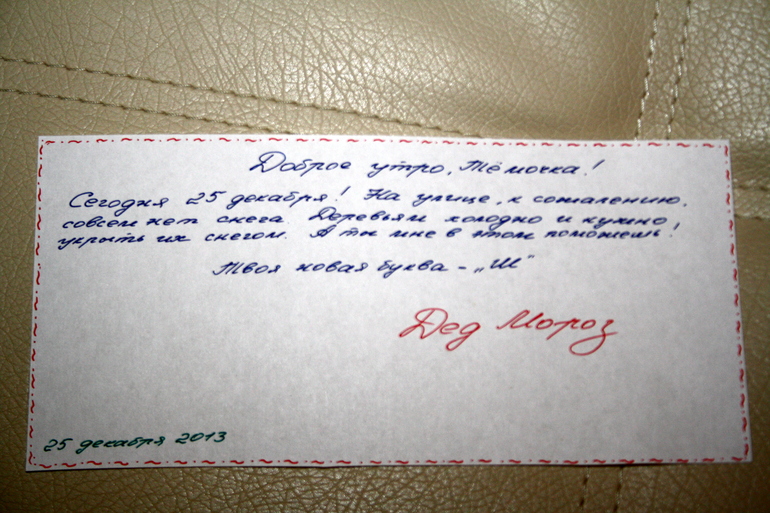 Доброе утро, Тёмочка!
Сегодня 25 декабря! На улице, к сожалению,
совсем нет снега. Деревьям холодно и нужно
укрыть их снегом. А ты мне в этом поможешь!
Твоя новая буква - „Ш"
Дед Мороз
25 декабря 2013